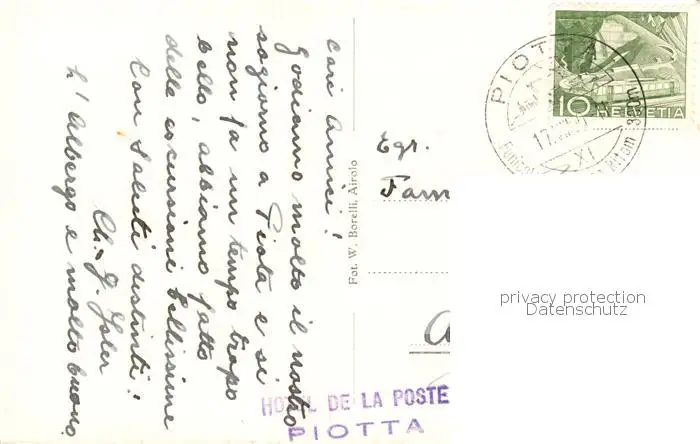 Cari Amici!
Godiamo molto il nostro
sogiorno a Piota e si
non fa un tempo tropo
bello, abbiamo fatto
delle escursioni bellissime
Con saluti distinti!
Ch. J. Isler
L'Albergo e molto buono.
Fot. W. Borelli, Airolo
Egr.
Fam
HOTEL DE LA POSTE
PIOTTA
PIOTTA
10 HELVETIA
17.
XI
privacy protection
Datenschutz